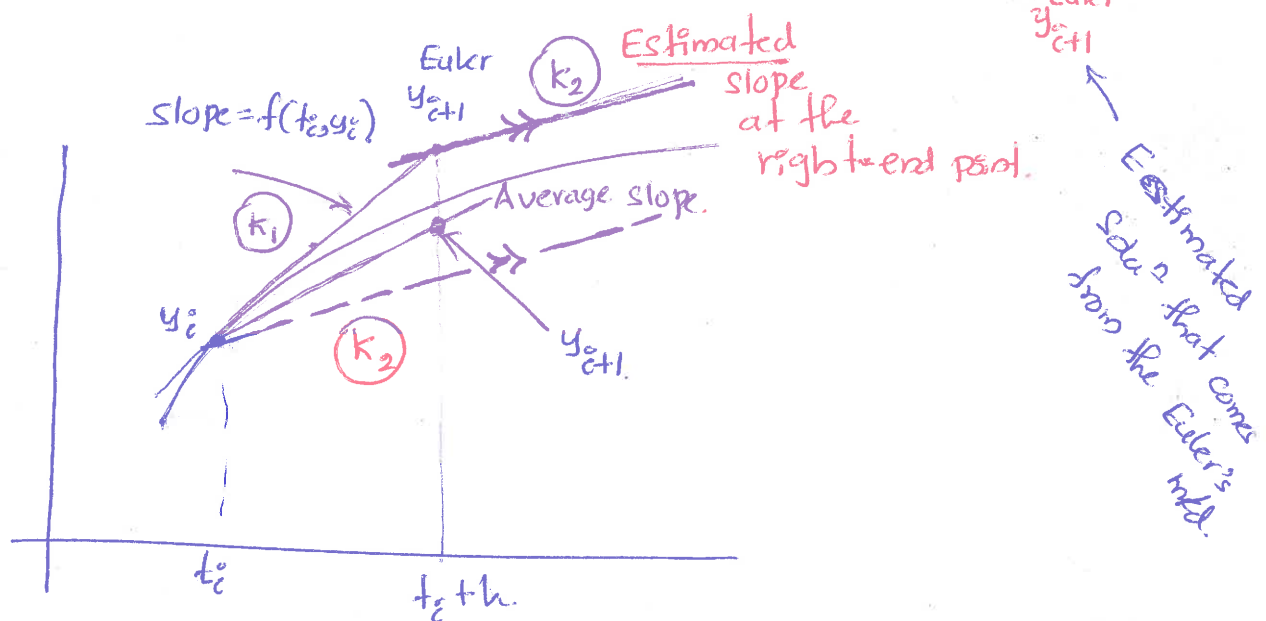 Euler
y_{i+1}
k_2
Estimated
slope
at the
right-end point.
slope = f(t_i, y_i)
k_1
Average slope.
y_i
k_2
y_{i+1}.
t_i
t_i + h.
y_{i+1}
Estimated
sol<u>n</u> that comes
from the Euler's
mtd.